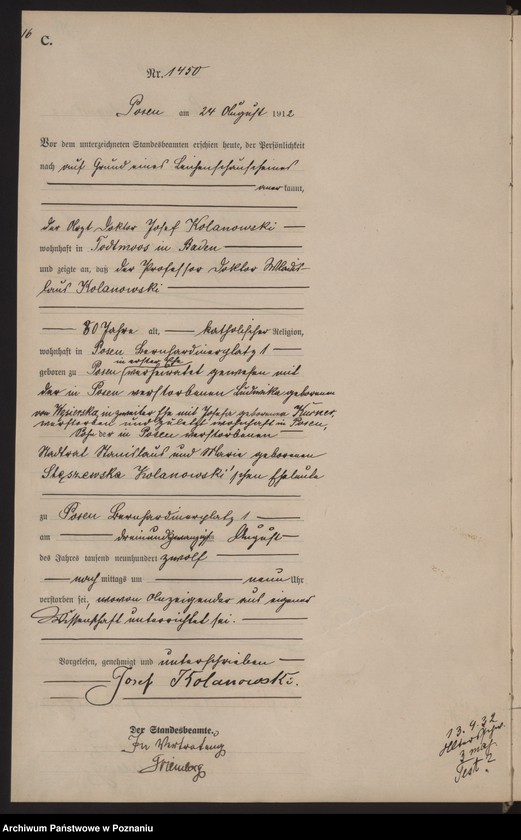 16
C.
Nr. 1450
Posen am 24 August 1912
Vor dem unterzeichneten Standesbeamten erschien heute, der Persönlichkeit
nach auf Grund eines Leichenschauscheines
aner kannt,
der Arzt Doktor Josef Kolanowski
wohnhaft in Todtmoos in Baden
und zeigte an, daß der Professor Doktor Wladis-
laus Kolanowski
80 Jahre alt, katholischer Religion,
wohnhaft in Posen Bernhardinerplatz 1
in erster Ehe
geboren zu Posen verheiratet gewesen mit
der in Posen verstorbenen Ludwika geborenen
von in zweiter Ehe mit Josefa geborenen
verstorben und zuletzt wohnhaft in Posen,
Sohn der in Posen verstorbenen
Stadtrat Stanislaus und Marie geborenen
Stęszewska Kolanowski'schen Eheleute
zu Posen Bernhardinerplatz 1
am dreiundzwanzigsten August
des Jahres tausend neunhundert zwölf
nach mittags um neun Uhr
verstorben sei, wovon Anzeigender aus eigener
Wissenschaft unterrichtet sei.
Vorgelesen, genehmigt und unterschrieben
Josef Kolanowski.
Der Standesbeamte.
In Vertretung
13.4.32
3 mal
Archiwum Państwowe w Poznaniu